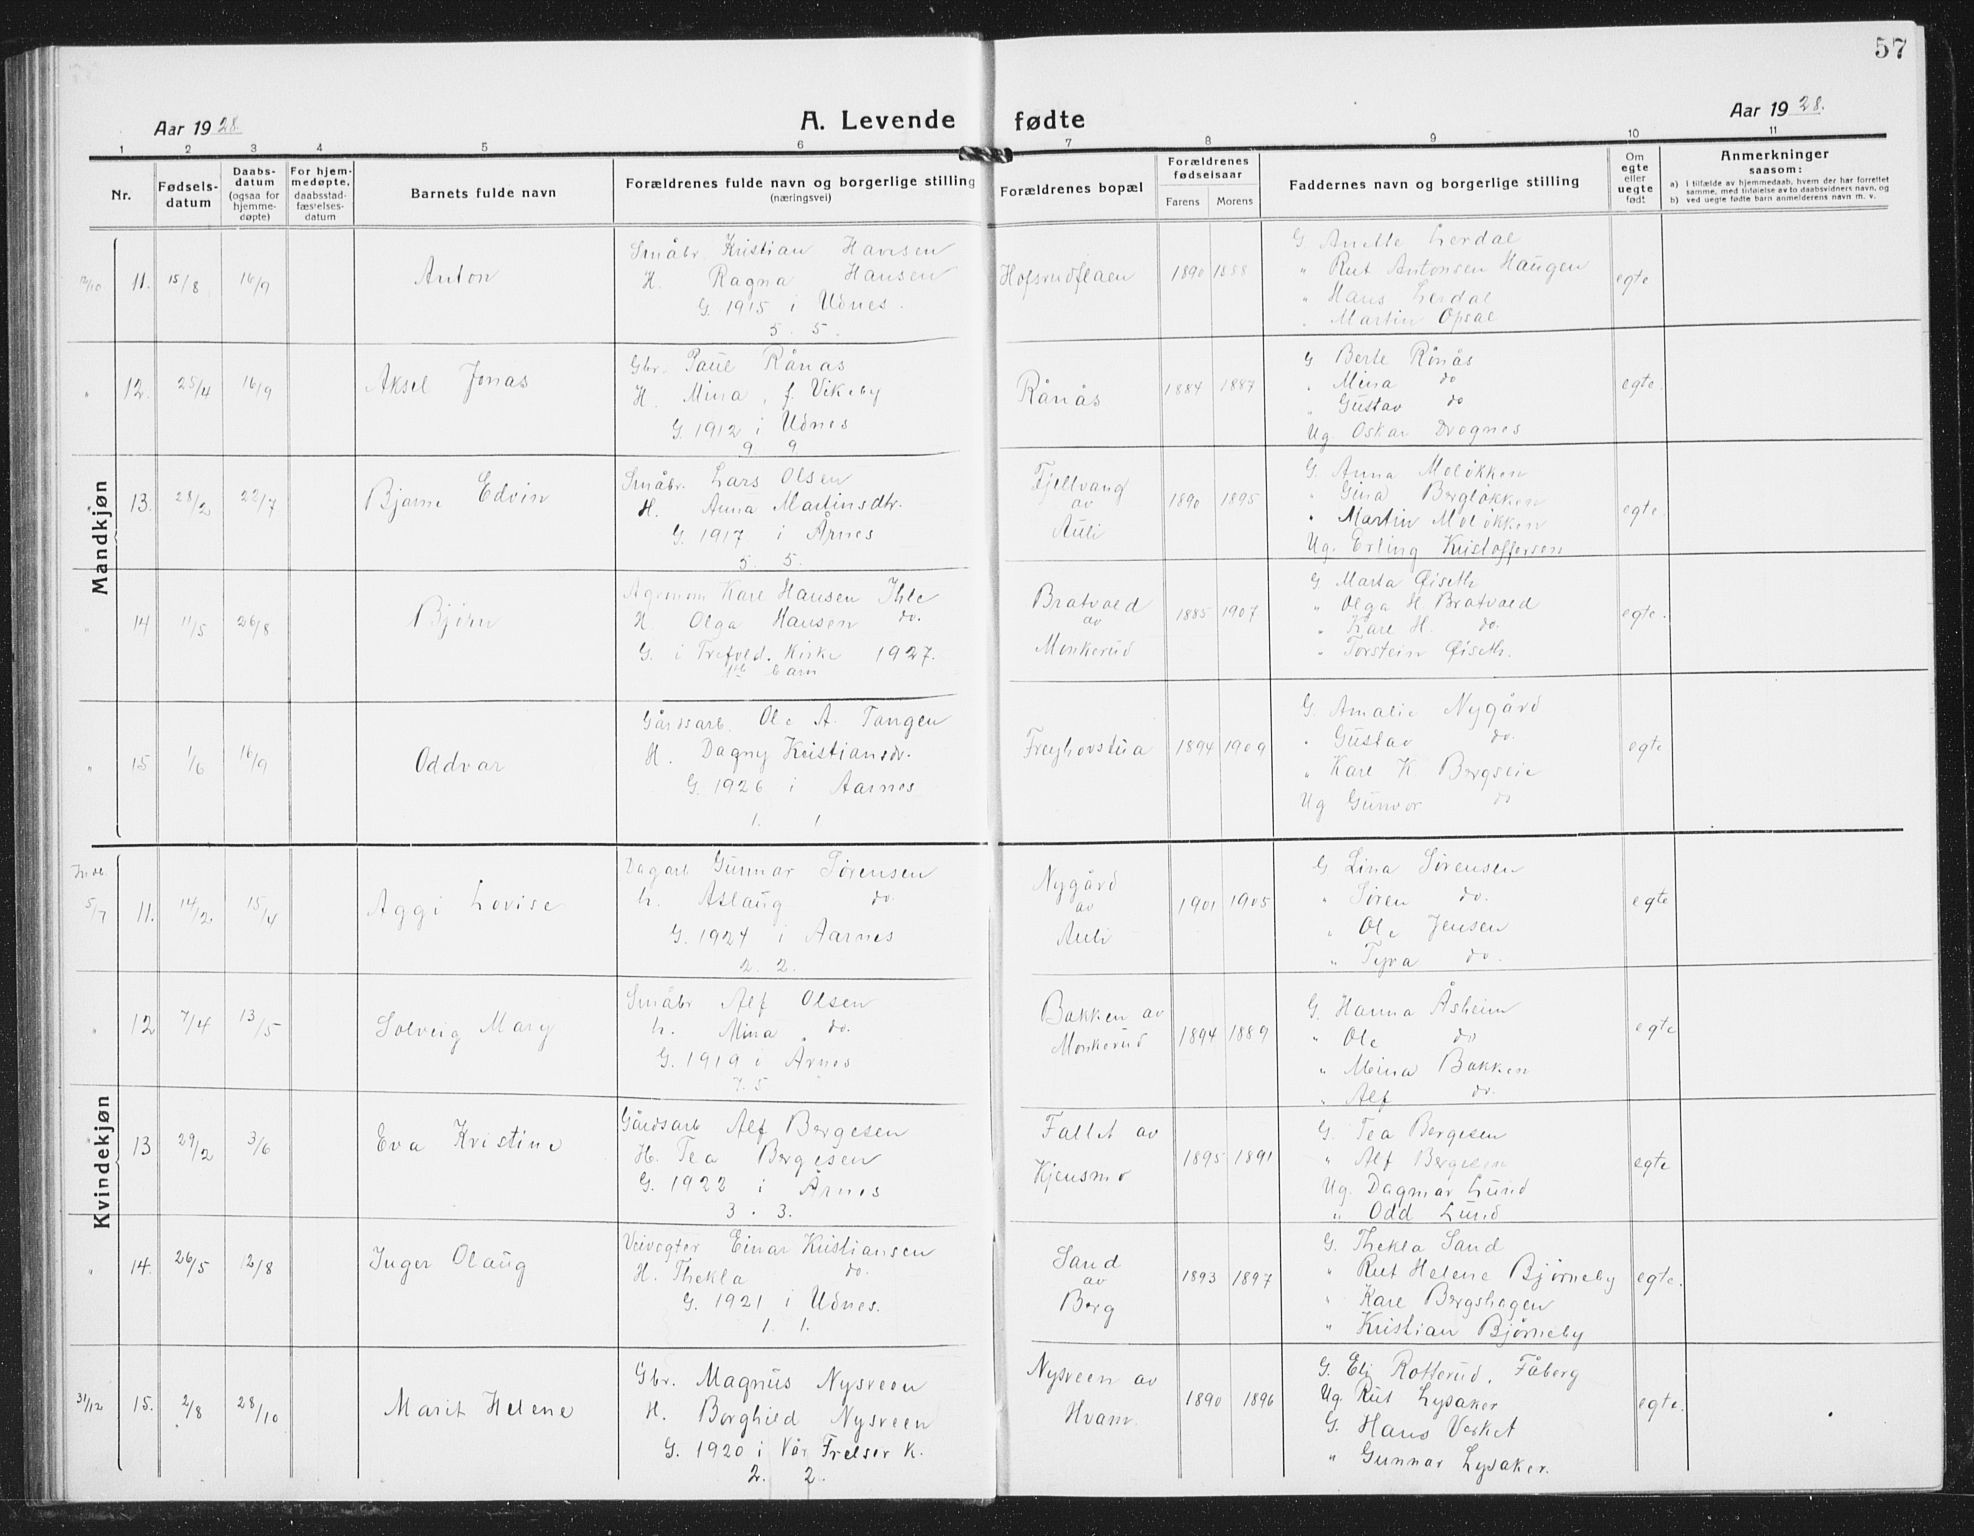 57
Aar 1928.
A. Levende fødte
Aar 1928.
1 2 3 4 5 6 7 8 9 10 11
Nr.
Fødselsdatum
Daabsdatum (ogsaa for hjemmedøpte)
For hjemmedøpte, daabsstadfæstelsesdatum
Barnets fulde navn
Forældrenes fulde navn og borgerlige stilling (næringsvei)
Forældrenes bopæl
Forældrenes fødselsaar
Farens Morens
Faddernes navn og borgerlige stilling
Om egte eller uegte født
Anmerkninger saasom:
a) I tilfælde av hjemmedaab, hvem der har forrettet samme, med tilføielse av to daabsvidners navn, og
b) ved uegte fødte barn anmelderens navn m. v.
Mandkjøn
12/10 11. 15/8 16/9 Anton
Småbr. Kristian Hansen
H. Ragna Hansen
G. 1915 i Udnes.
5. 5.
Hofsrudflaen 1890 1888
G. Anette Lerdal
" Rut Antonsen Haugen
" Hans Lerdal
" Martin Opsal
egte
" 12. 25/4 16/9 Aksel Jonas
Gbr. Paul Rånås
H. Mina, f. Vikeby
G. 1912 i Udnes
9 9
Rånås 1884 1887
G Berte Rånås
" Mina do
" Gustav do
Ug. Oskar Drognes
egte.
" 13. 28/2 22/7 Bjarne Edvin
Småbr. Lars Olsen
H. Anna Martinsdtr.
G. 1917 i Årnes
5. 5.
Fjellvang av Auli 1890 1895
G Anna Moløkken
" Gina Bergløkken
" Martin Moløkken
Ug. Erling Kristoffersen
egte.
" 14 11/5 26/8 Bjørn
Agronom Karl Hansen Ihle
H. Olga Hansen do.
G. i Trefold. Kirke 1927.
1ste barn
Bratvold av Monkerud 1885 1907
G Marta Øiseth
" Olga H Bratvold
" Karl H. do.
" Torstein Øiseth.
egte.
" 15 1/6 16/9 Oddvar
Gårdsarb. Ole A. Tangen
H. Dagny Kristiansdr.
G. 1926 i Aarnes
1. 1
Freyhovstua 1894 1909
G. Amalie Nygård
" Gustav do.
" Karl K Bergseie
Ug Gunvor do
egte
Kvindekjøn
5/7 11. 14/2 15/4 Aggi Lovise
Dagarb Gunnar Sørensen
h. Aslaug do.
G. 1924 i Aarnes
2. 2.
Nygård av Auli 1901 1905
G Lina Sørensen
" Søren do.
" Ole Jensen
" Tyra do.
egte
" 12 7/4 13/5 Solveig Mary
Småbr Alf Olsen
h. Mina do.
G. 1919 i Årnes
7. 5
Bakken av Monkerud 1894 1889
G. Hanna Åsheim
" Ole do
" Meina Bakken
" Alf do.
egte
" 13 29/2 3/6 Eva Kristine
Gårdsarb Alf Bergesen
H. Tea Bergesen
G. 1922 i Årnes
3. 3.
Fallet av Kjensmo 1895 1891
G. Tea Bergesen
" Alf Bergesen
Ug. Dagmar Lund
" Odd Lund
egte
" 14. 26/5 12/8 Inger Olaug
Veivogter Einar Kristiansen
H. Thekla do.
G. 1921 i Udnes.
1. 1.
Sand av Berg 1893 1897
G. Thekla Sand
" Rut Helene Bjørneby
" Karl Bergshagen
" Kristian Bjørneby
egte.
31/12 15. 2/8 28/10 Marit Helene
Gbr. Magnus Nysveen
H. Borghild Nysveen
G. 1920 i Vår Frelser K.
2. 2.
Nysveen av Hvam. 1890 1896
G. Eli Rotterud, Fåberg
Ug Rut Lysaker
G. Hans Verket
" Gunnar Lysaker.
egte.